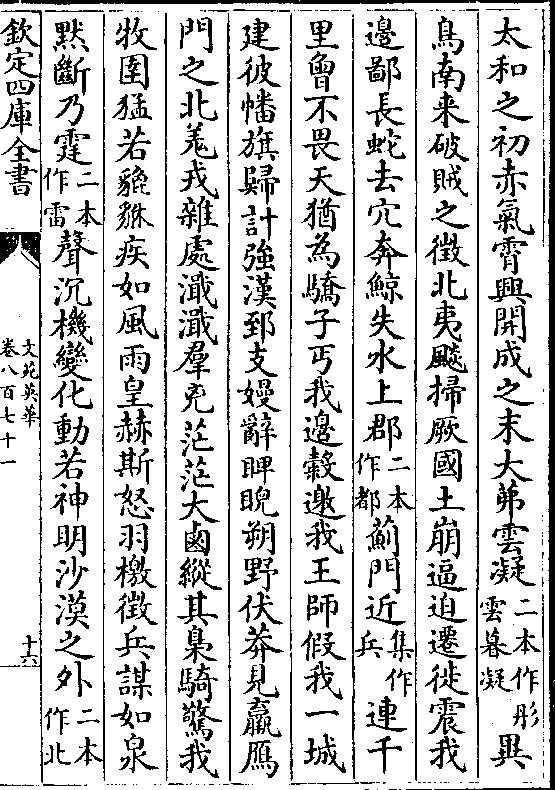 太和之初赤氣宵興開成之末大茀雲凝二本作彤雲暮凝異
鳥南来破賊之徴北夷飇掃厥國土崩逼迫遷徙震我
邉鄙長蛇去穴奔鯨失水上郡二本作都薊門近集作兵連千
里曾不畏天猶為驕子丐我邉糓邀我王師假我一城
建彼幡旗歸計強漢郅支嫚辭睥睨朔野伏莽見羸鴈
門之北羗戎雜處濈濈羣羌茫茫大鹵縱其梟騎驚我
牧圉猛若貔貅疾如風雨皇赫斯怒羽檄徴兵謀如泉
黙斷乃霆二本作雷聲沉機變化動若神明沙漠之外二本作北
欽定四庫全書
文苑英華
卷八百七十一
十六